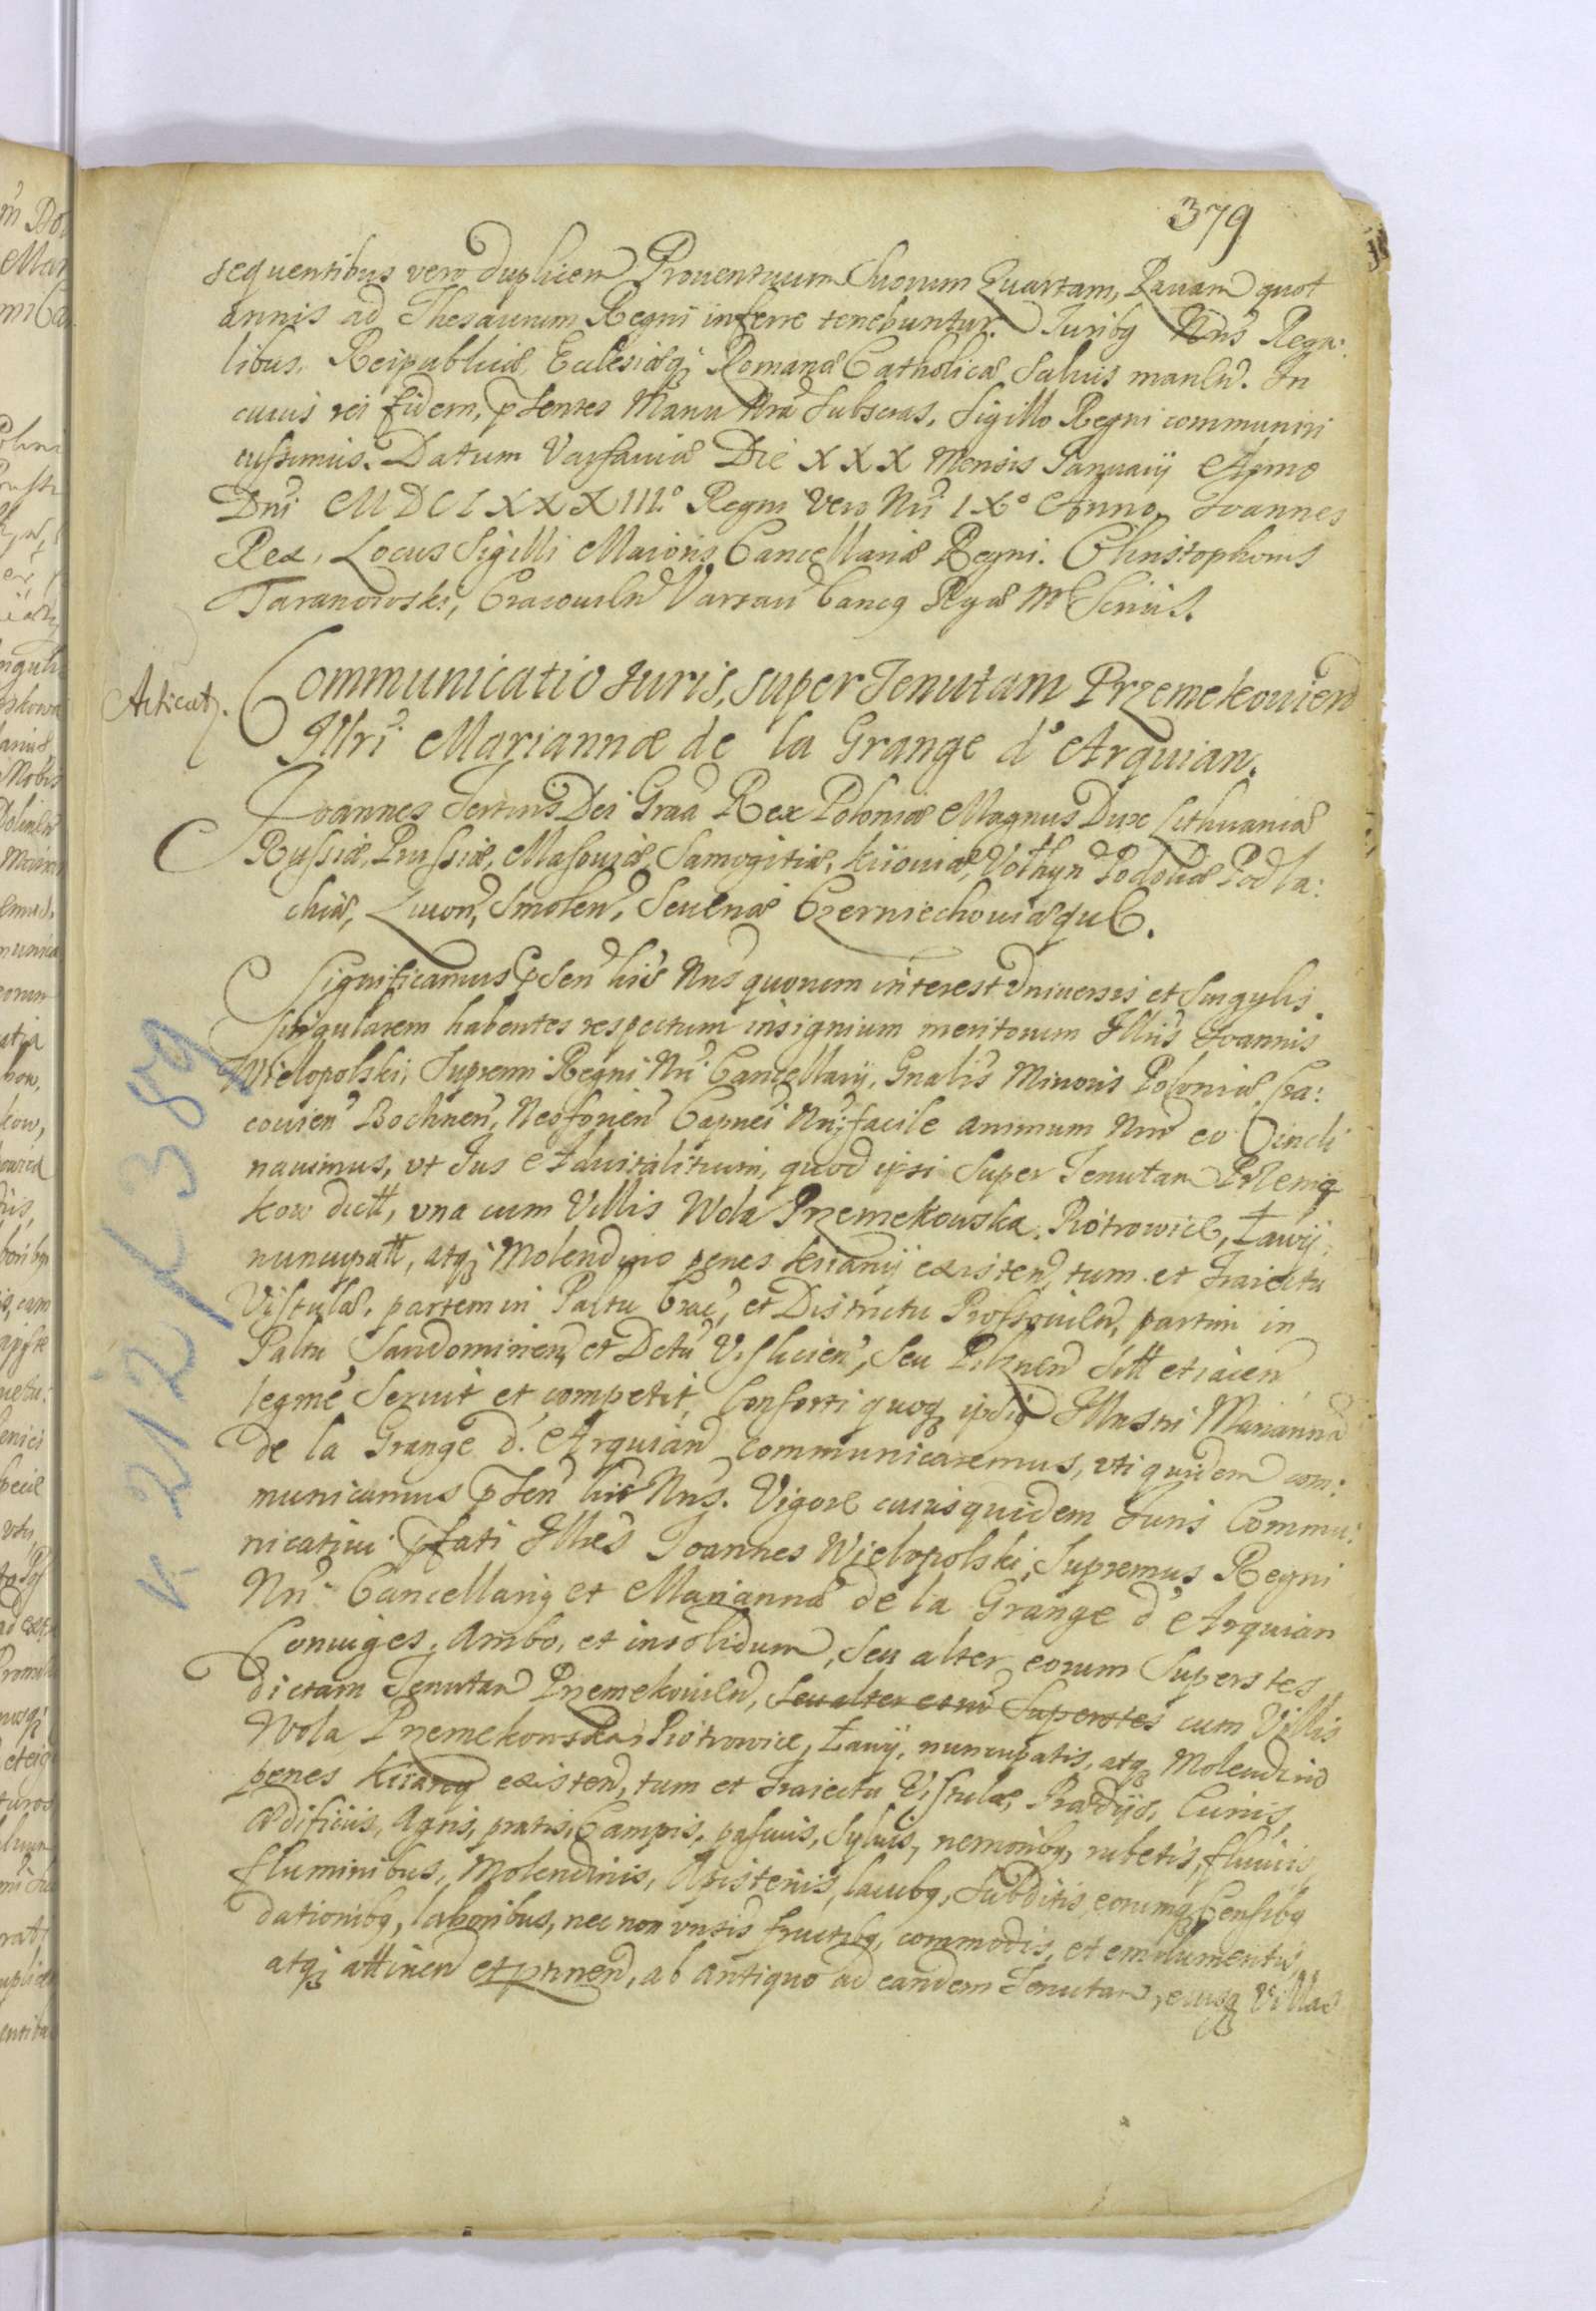 379
sequentibus vero duplicem Prouentuum Suorum Quartam, Ravam quot
annis ad Thesaurum Regni inferre tenebuntur. Juribq Nris Rega:
libus, Reipublicæ, Ecclesiæq Romanæ Catholicæ Saluis manen. In
cuius rei fidem, pꝛsentes Manu Nra Subscras, Sigillo Regni communiri
iussimus. Datum Varsauiæ Die XXX Mensis Januarij Anno
Dni MDCLXXXIII.° Regni Vero Nri IX° Anno. Joannes
Rex, Locus Sigilli Maioris Cancellariæ Regni. Christophorus
Taranowski, Cracouien Varsau Canoq Rgæ Mtis Scriùs.
Communicatio Juris, super Tenutam Przemekouien
Illri Mariannæ de la Grange d'Arquian.
Joannes Tertius Dei Graã Rex Poloniæ Magnus Dux Lithuaniæ
Russiæ, Prussiæ, Masouiæ, Samogitiæ, Kiiouiæ, Volhyn Podoliæ Podla:
chiæ, Liuon, Smolen, Seueriæ Czerniechouiæquꝫ.
Significamus pꝛsen hiš Nris quorum interest Vniuersis et Singulis.
Singularem habentes respectum insignium meritorum Illris Joannis
Wielopolski, Supremi Regni Nri Cancellarij, Gnalis Minoris Poloniæ, Cra:
couien Bochnen, Neoforien Capnei Nri, facile animum Nrm eo incli
nauimus, vt Jus Aduitalitium, quod ipsi Super Tenutam Przemę
kow dictt, vna cum Villis Wola Przemekowska, Piotrowice, Ławy,
nuncupatt, atqꝫ Molendino penes existen, tum et Traiectu
Vistulæ, partem in Paltu Crac, et Districtu Proszouien, partim in
Paltu Sandomirien, et Dctu Vislicien, Seu Pilznen Sitt et iacen
legmé Seruit et competit, Consorti quoq ipsiq Illustri Mariannæ
de la Grange d'Arquian communicaremus, vti quidem com:
municamus pꝛsen hiš Nris. Vigore cuius quidem Juris Commu:
nicatiui pꝛfati Illres Joannes Wielopolski, Supremus Regni
Nri Cancellariq et Marianna de la Grange d'Arquian
Coniuges, Ambo, et insolidum, Seu alter eorum Superstes
dictam Tenutam Przemekouien, Seu alter eorũ Superstes cum Villis
Wola Przemekowska, Piotrowice, Ławy, nuncupatis, atqꝫ Molendino
penes existen, tum et Traiectu Vistulæ, Prædijs, Curijs,
ædificiis, Agris, pratis, Campis, pascuis, Syluis, nemoribq, rubetis, fluuiis
fluminibus, Molendinis, Piscinis, lacubq, Subditis eorumq Censibq
dationibq, laboribus, nec non vnsis fructibq, commodis, et emolumentis
atqꝫ attinen et ptinen, ab antiquo ad eandem Tenutam, eiusqꝫ Villas